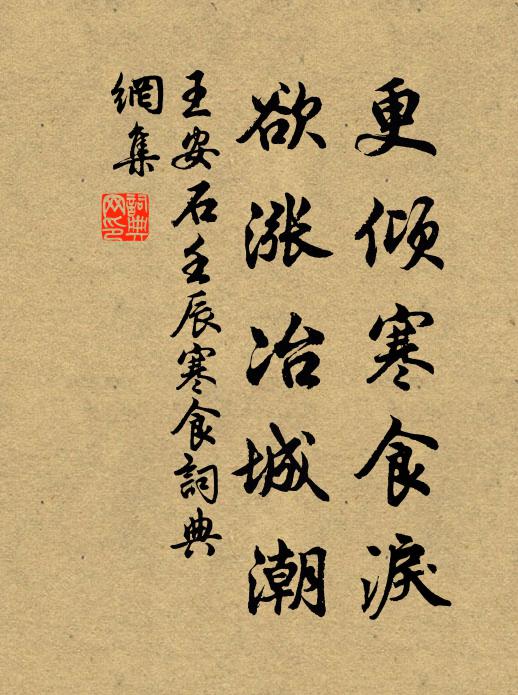 更傾寒食淚
欲漲冶城潮
王安石壬辰寒食詞典
網集
詞典網印